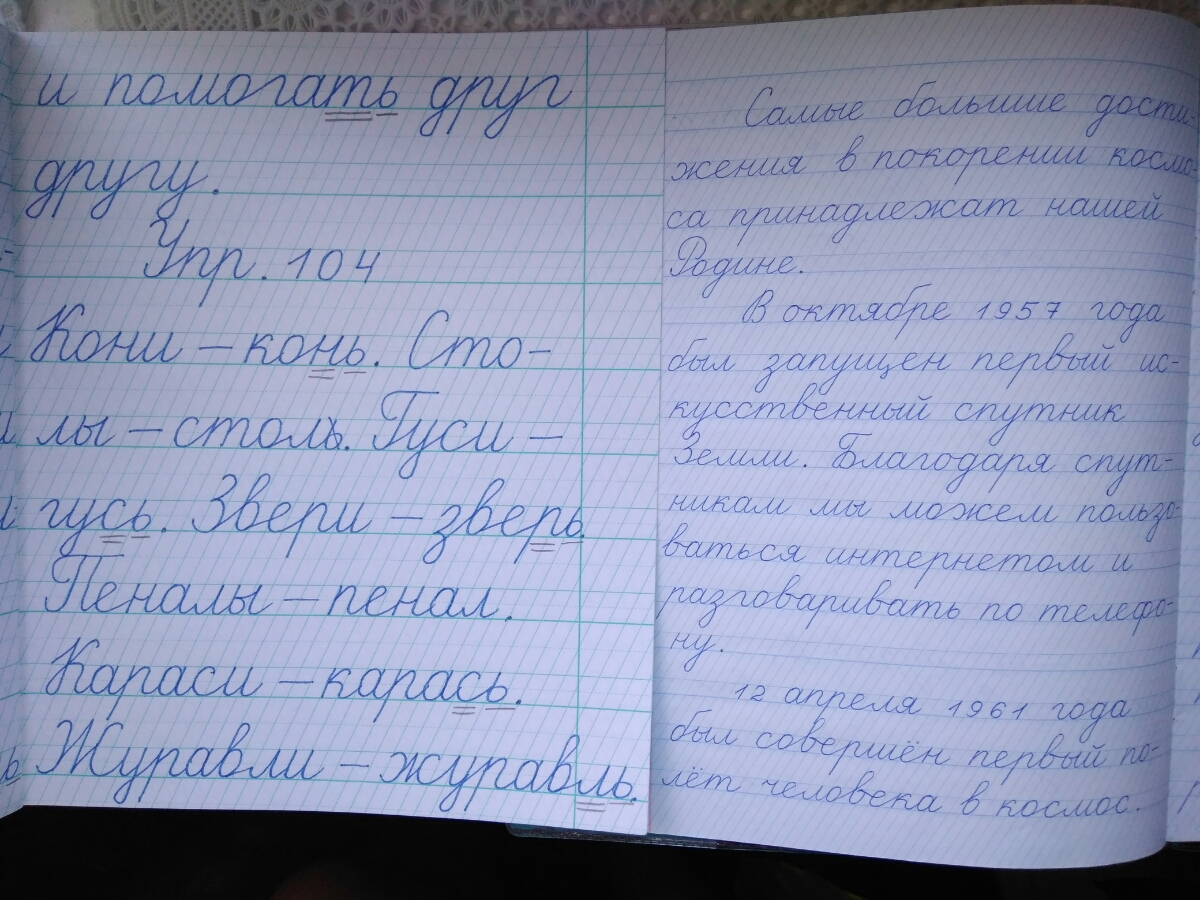 и помогать друг
другу.
Упр. 104
Кони – конь. Сто-
лы – столь. Гуси –
гусь. Звери – зверь.
Пеналы – пенал.
Караси – карась.
Журавли – журавль.
Самые большие дости-
жения в покорении космо-
са принадлежат нашей
Родине.
В октябре 1957 года
был запущен первый ис-
кусственный спутник
Земли. Благодаря спут-
никам мы можем пользо-
ваться интернетом и
разговаривать по телефо-
ну.
12 апреля 1961 года
был совершён первый по-
лёт человека в космос.